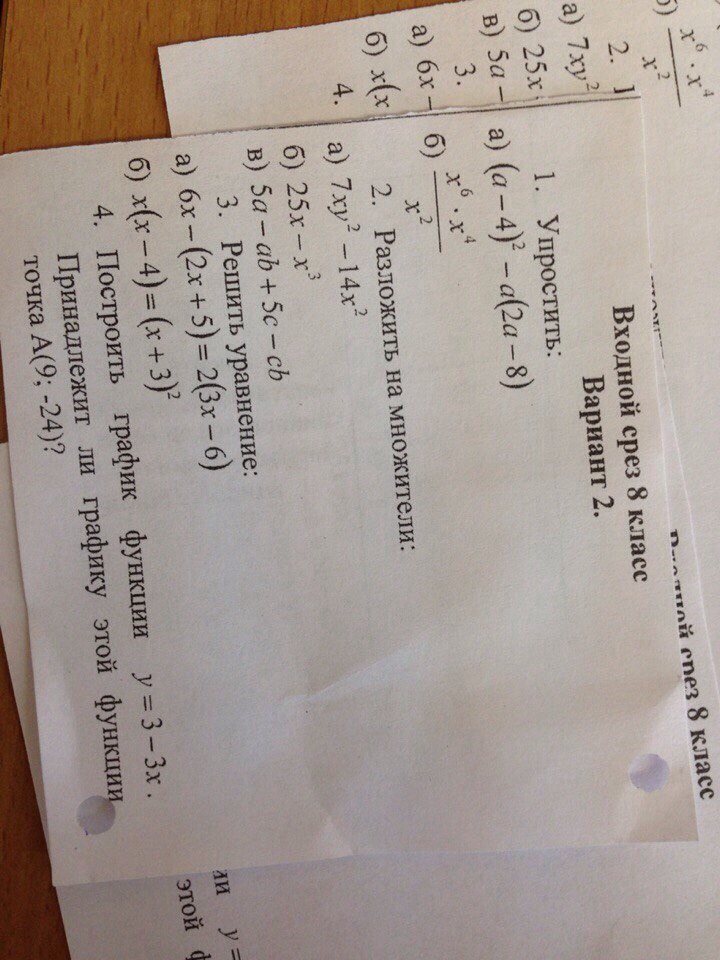 Входной срез 8 класс
Вариант 2.
1. Упростить:
а) (a − 4)² − a(2a − 8)
б) x⁶ · x⁴ / x²
2. Разложить на множители:
а) 7xy² − 14x²
б) 25x − x³
в) 5a − ab + 5c − cb
3. Решить уравнение:
а) 6x − (2x + 5) = 2(3x − 6)
б) x(x − 4) = (x + 3)²
4. Построить график функции y = 3 − 3x.
Принадлежит ли графику этой функции
точка А(9; -24)?
Входной срез 8 класс
б) x⁶ · x⁴ / x²
2.
а) 7xy²
б) 25x
в) 5a −
3.
а) 6x −
б) x(x
4.
y =
этой